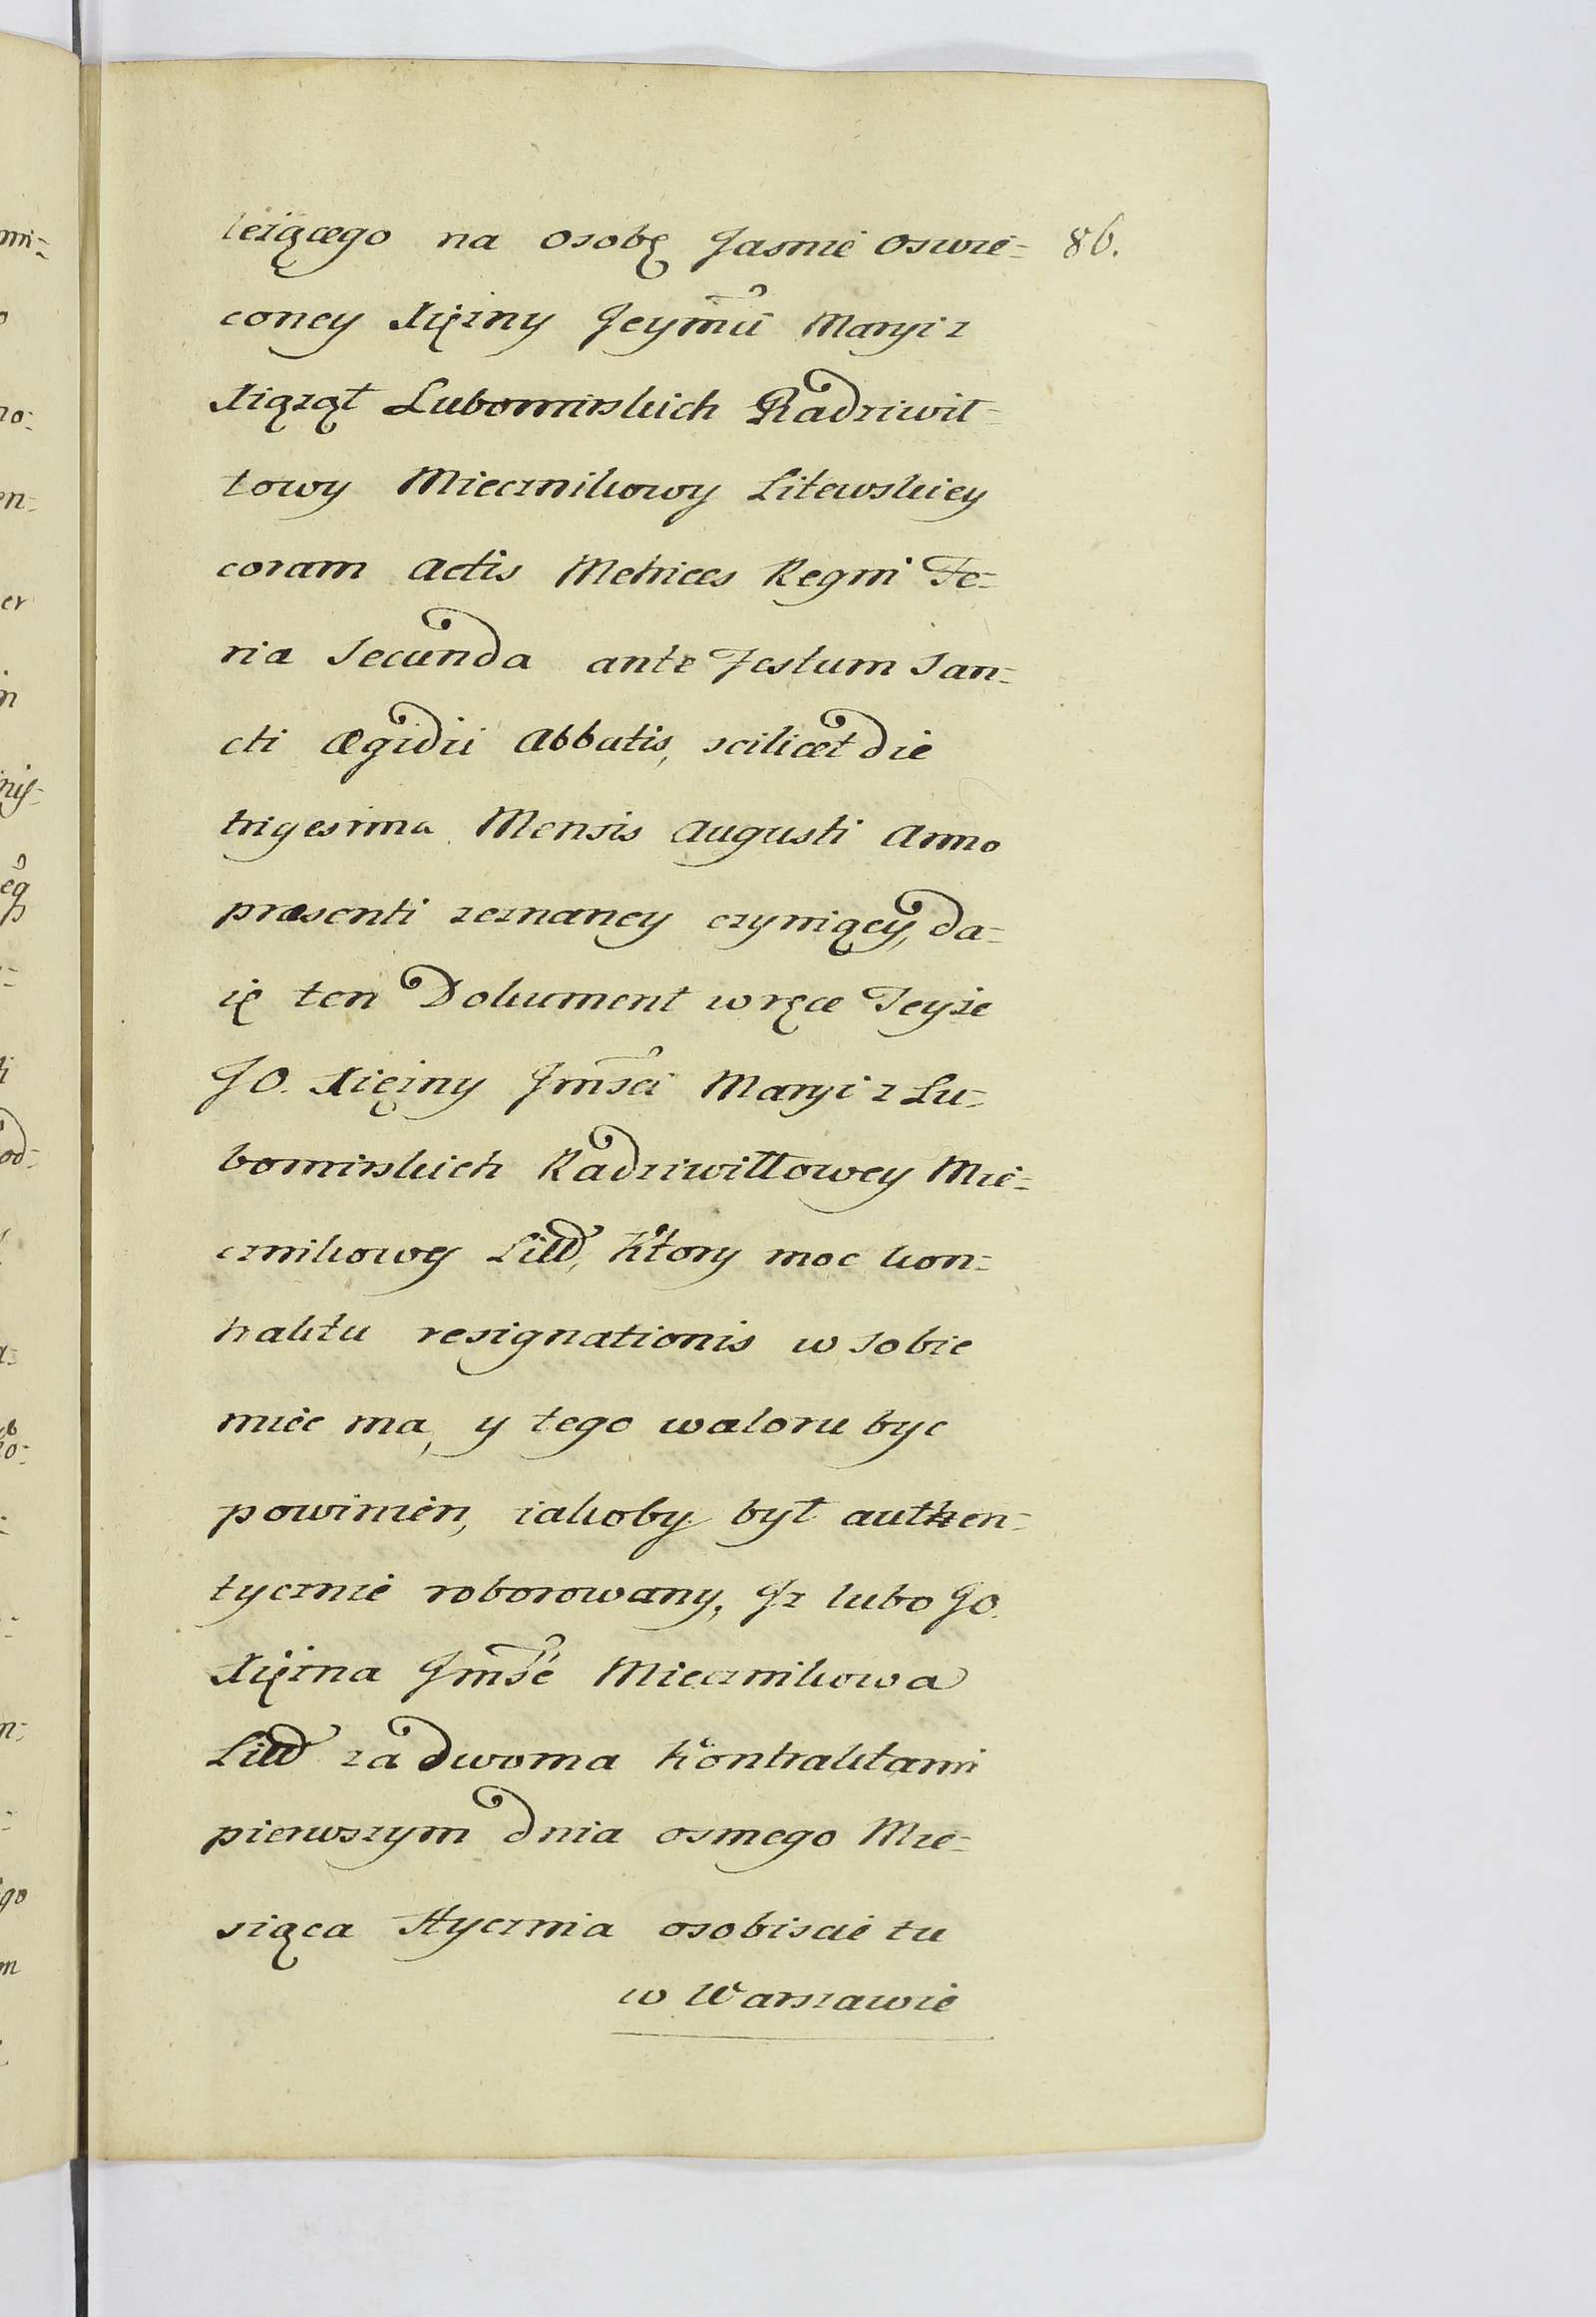 leżącego na osobę Jasnie oswie= 86.
coney Xiężny Jeymći Maryi z
Xiążąt Lubomirskich Radziwił=
łowy Miecznikowy Litewskiey
coram Actis Metrices Regni Fe=
ria Secunda ante Festum San=
cti Ægidii Abbatis, scilicet die
trigesima Mensis Augusti Anno
præsenti zeznaney czyniący, da=
ię ten Dokument w ręce Teyże
JO. Xiężny Jmści Maryi z Lu=
bomirskich Radziwiłłowey Mie=
cznikowy Litt, Ktory moc kon=
traktu resignationis w sobie
miec ma, y tego waloru byc
powinien, iakoby był authen=
tycznie roborowany, Jż lubo JO.
Xiężna Jmść Miecznikowa
Litt za dwoma Kontraktami
pierwszym dnia osmego Mie=
siąca Stycznia osobiscie tu
w Warszawie